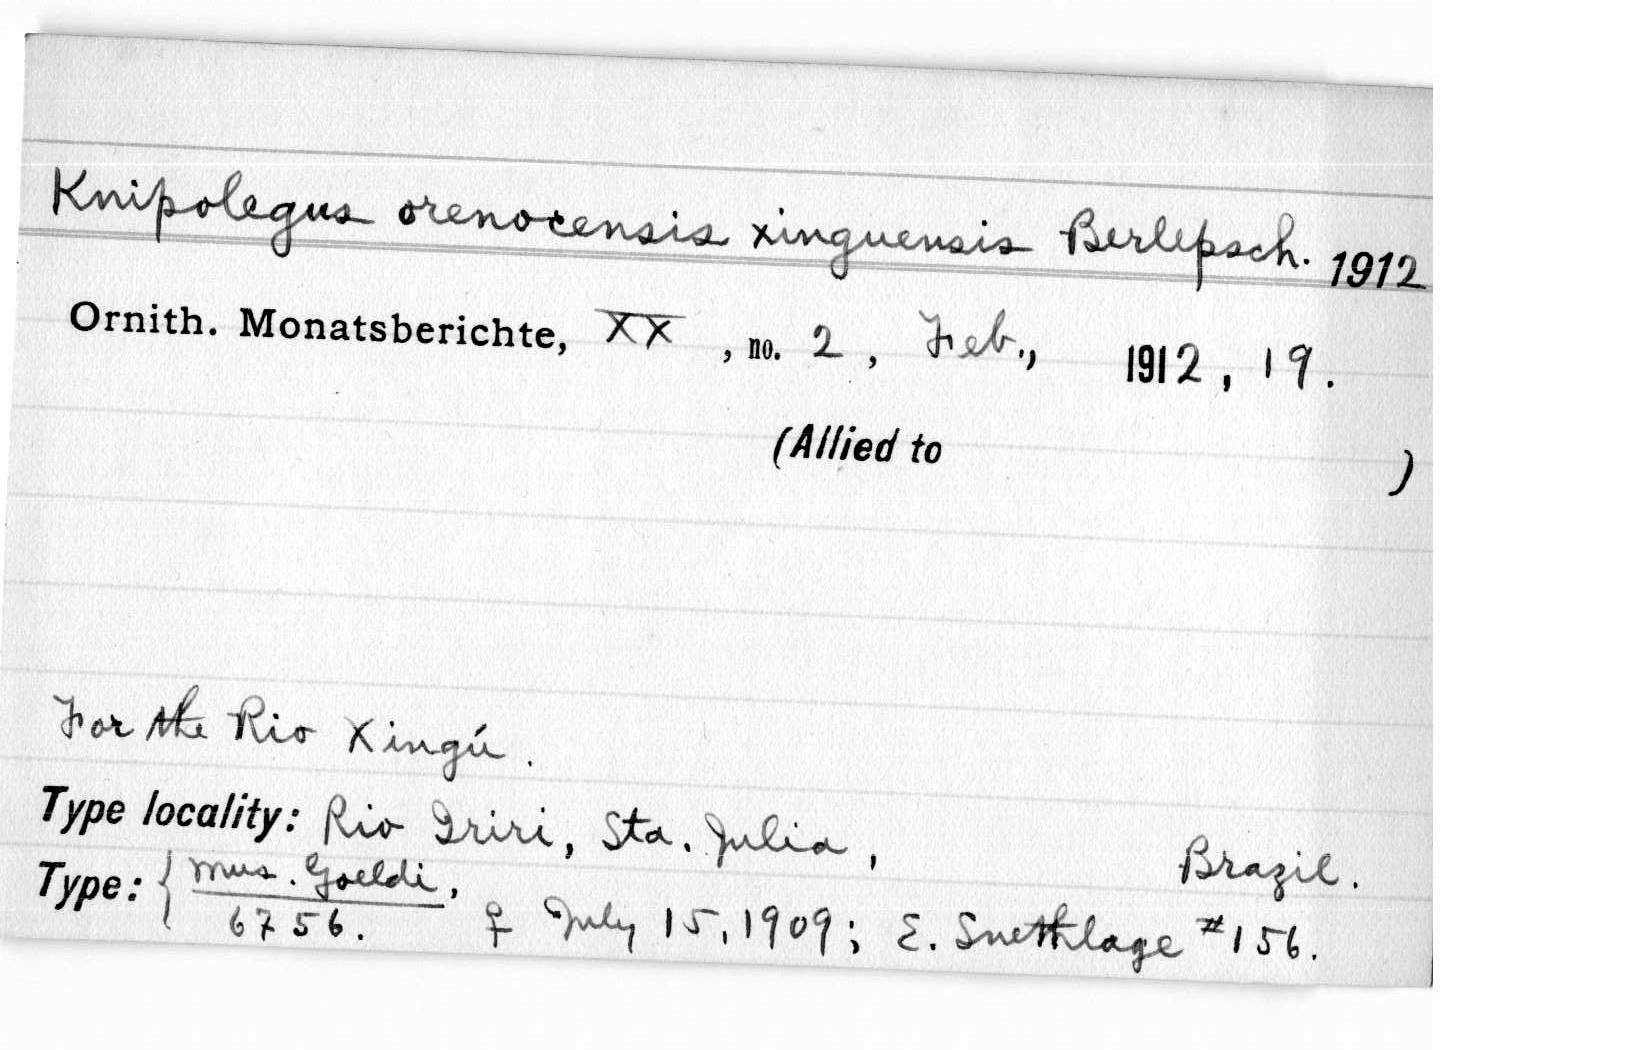 Knipolegus orenocensis xinguensis Berlepsch. 1912
Ornith. Monatsberichte, XX, no. 2, Feb., 1912, 19.
(Allied to )
For the Rio Xingú.
Type locality: Rio Iriri, Sta. Julia, Brazil.
Type: { Mus. Goeldi,
6756. ♀ July 15, 1909; E. Snethlage #156.